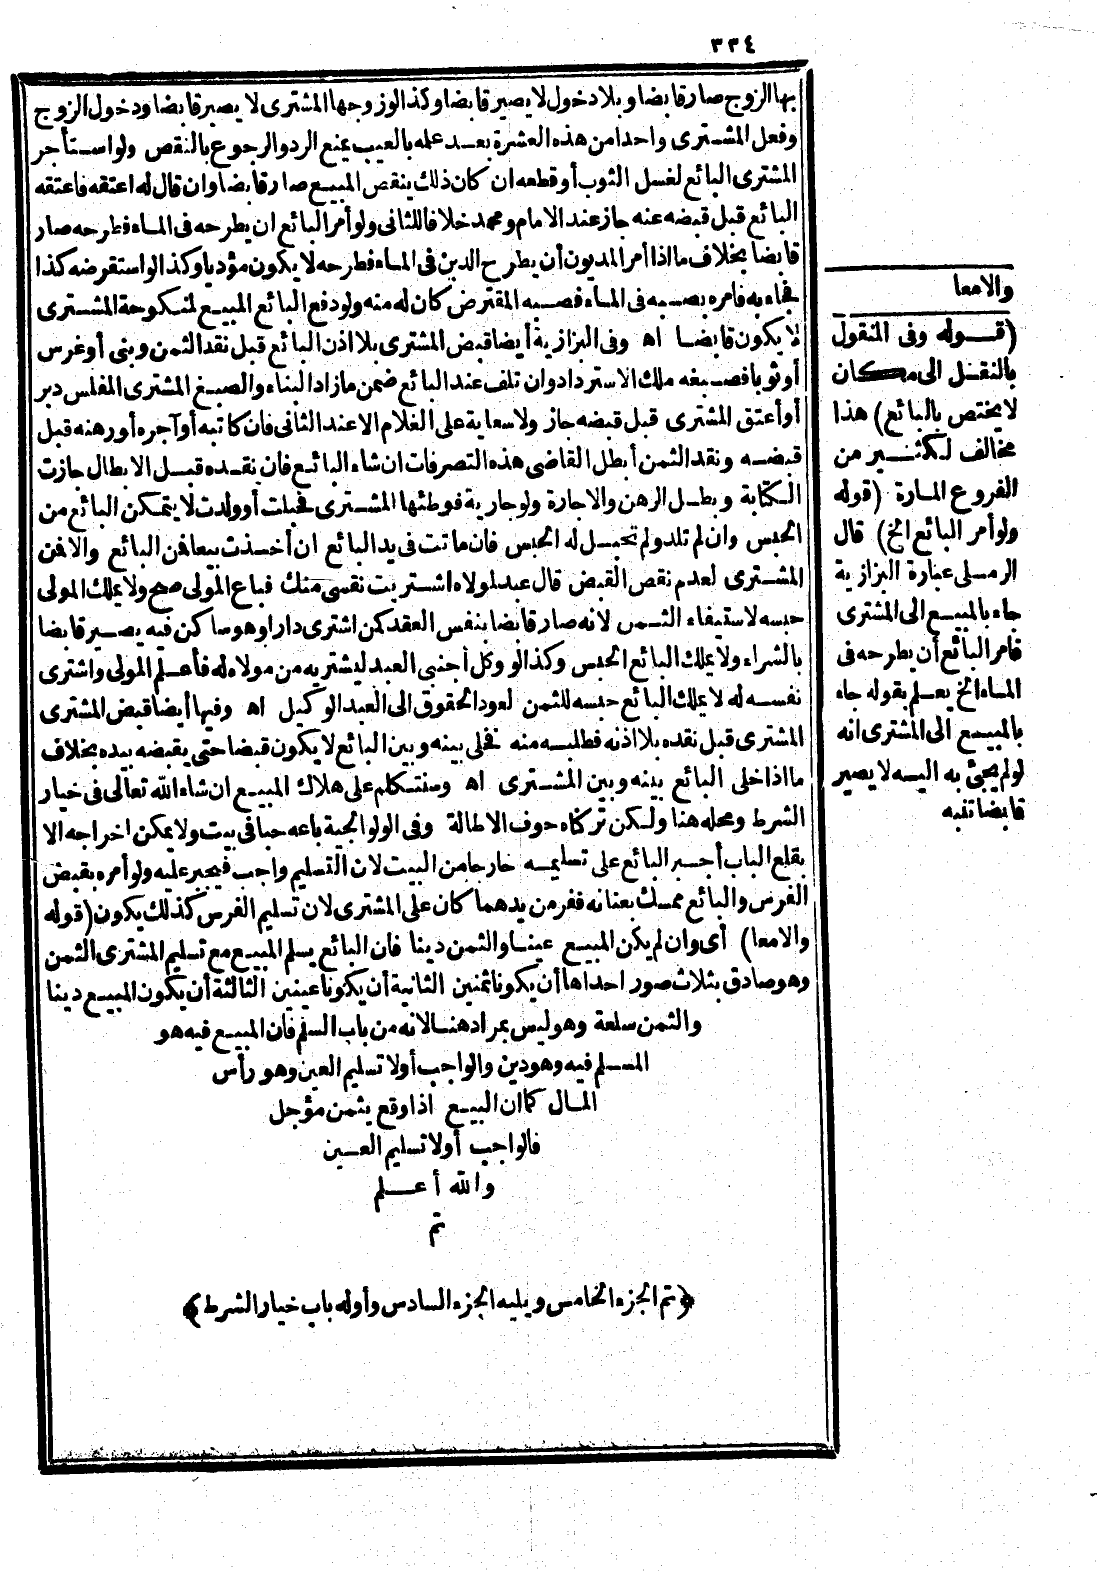 ٣٣٤
بها الزوج صار قابضا وبلا دخول لا يصير قابضا وكذا لو زوجها المشترى لا يصير قابضا ودخول الزوج
وفعل المشترى واحدا من هذه العشرة بعد علمه بالعيب يمنع الرد والرجوع بالنقص ولو استأجر
المشترى البائع لغسل الثوب أو قطعه ان كان ذلك ينقص المبيع صار قابضا وان قال له اعتقه فاعتقه
البائع قبل قبضه عنه جاز عند الامام ومحمد خلافا للثانى ولو أمر البائع ان يطرحه فى الماء فطرحه صار
قابضا بخلاف ما اذا أمر المديون أن يطرح الدين فى الماء فطرحه لا يكون مؤديا وكذا لو استقرضه كذا
فجاء به فامره بصبه فى الماء فصبه المقترض كان له منه ولو دفع البائع المبيع لمنكوحة المشترى
لا يكون قابضا اه وفى البزازية أيضا قبض المشترى بلا اذن البائع قبل نقد الثمن وبنى أو غرس
أو ثوبا فصبغه ملك الاسترداد وان تلف عند البائع ضمن ما زاد البناء والصبغ المشترى المفلس دبر
أو أعتق المشترى قبل قبضه جاز ولا سعاية على الغلام الا عند الثانى فان كاتبه أو آجره أو رهنه قبل
قبضه ونقد الثمن أبطل القاضى هذه التصرفات ان شاء البائع فان نقده قبل الابطال جازت
الكتابة وبطل الرهن والاجارة ولو جارية فوطئها المشترى فحبلت أو ولدت لا يتمكن البائع من
الحبس وان لم تلد ولم تحبل له الحبس فان ماتت فى يد البائع ان أخذت ببيعها فمن البائع والا فمن
المشترى لعدم نقص القبض قال عبد لمولاه اشتريت نفسى منك فباع المولى صح ولا يملك المولى
حبسه لاستيفاء الثمن لانه صار قابضا بنفس العقد كمن اشترى دارا وهو ساكن فيه يصير قابضا
بالشراء ولا يملك البائع الحبس وكذا لو وكل أجنبى العبد ليشتريه من مولاه له فأعلم المولى واشترى
نفسه له لا يملك البائع حبسه للثمن لعود الحقوق الى العبد الوكيل اه وفيها أيضا قبض المشترى
المشترى قبل نقده بلا اذنه فطلبه منه فخلى بينه وبين البائع لا يكون قبضا حتى يقبضه بيده بخلاف
ما اذا خلى البائع بينه وبين المشترى اه وسنتكلم على هلاك المبيع ان شاء الله تعالى فى خيار
الشرط ومحله هنا ولكن تركناه خوف الاطالة وفى الولوالجية باعه حبا فى بيت ولا يمكن اخراجه الا
بقلع الباب أجبر البائع على تسليمه خارجا من البيت لان التسليم واجب فيجبر عليه ولو أمره بقبض
الفرس والبائع ممسك بعنانه ففر من يدهما كان على المشترى لان تسليم الفرس كذلك يكون (قوله
والا معا) أى وان لم يكن المبيع عينا والثمن دينا فان البائع يسلم المبيع مع تسليم المشترى الثمن
وهو صادق بثلاث صور احداها أن يكونا ثمنين الثانية أن يكونا عينين الثالثة أن يكون المبيع دينا
والثمن سلعة وهو ليس بمراد هنا لانه من باب السلم فان المبيع فيه هو
المسلم فيه وهو دين والواجب أولا تسليم العين وهو رأس
المال كما ان البيع اذا وقع بثمن مؤجل
فالواجب أولا تسليم العين
والله أعلم
تم
﴿تم الجزء الخامس ويليه الجزء السادس وأوله باب خيار الشرط﴾
والا معا
(قوله وفى المنقول
بالنقل الى مكان
لا يختص بالبائع) هذا
مخالف لكثير من
الفروع المارة (قوله
ولو أمر البائع الخ) قال
الرملى عبارة البزازية
جاء بالمبيع الى المشترى
فامر البائع أن يطرحه فى
الماء الخ يعلم بقوله جاء
بالمبيع الى المشترى انه
لو لم يجئ به اليه لا يصير
قابضا تنبه